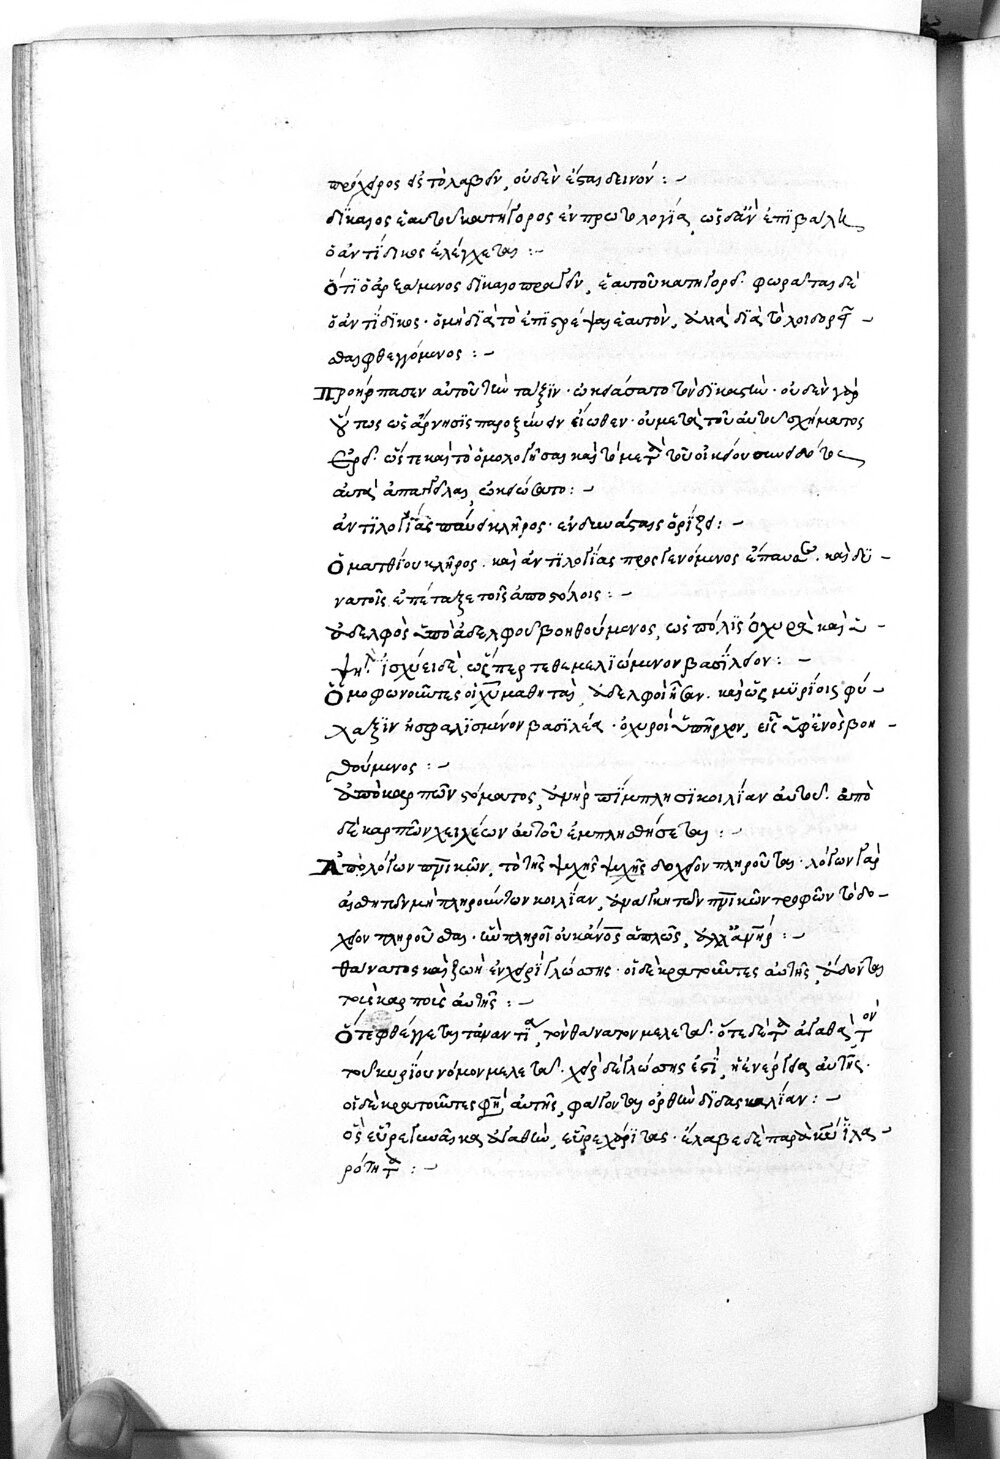 πρόχειρος εἰς τὸ λαβεῖν, οὐδὲν ἔσται δεινόν : ~
δίκαιος ἑαυτοῦ κατήγορος ἐν πρωτολογίᾳ, ὡς δ' ἂν ἐπιβάλῃ
ὁ ἀντίδικος ἐλέγχεται : ~
Ὅτι ὁ ἀρξάμενος δικαιοπραγεῖν, ἑαυτοῦ κατηγορεῖ· φωρᾶται δὲ
ὁ ἀντίδικος· ὁ μὴ διὰ τὸ ἐπιστρέψαι ἑαυτὸν, ἀλλὰ διὰ τὸ λοιδορεῖ –
σθαι φθεγγόμενος : ~
Προήρπασεν αὐτοῦ τὴν τάξιν· ᾠκειώσατο τὸν δικαστὴν· οὐδὲν γὰρ
οὕτως ὡς ἄρνησις παροξύνειν εἴωθεν· οὐ μετὰ τοῦ αὐτοῦ σχήματος
ὥστε καὶ τὸ ὁμολογῆσαι καὶ τὸ μετὰ τοῦ οἰκείου συνειδότος
ἀπαγγεῖλαι, ᾠκειώσατο : ~
ἀντιλογίας παύει κλῆρος· ἐν δυνάσταις ὁρίζει : ~
Ὁ ματθίου κλῆρος, καὶ ἀντιλογίας προσγενόμενος ἔπαυσε, καὶ δυ –
νατοῖς ἐπέταξε τοῖς ἀποστόλοις : ~
ἀδελφὸς ὑπὸ ἀδελφοῦ βοηθούμενος, ὡς πόλις ὀχυρὰ καὶ ὑ –
ψηλὴ. ἰσχύει δὲ, ὥσπερ τεθεμελιωμένον βασίλειον : ~
Ὁμοφωνοῦντες οἱ χῡ μαθηταὶ, ἀδελφοὶ ἦσαν. καὶ ὡς μυρίοις φύ –
λαξιν ἠσφαλισμένον βασιλέα· ὀχυροὶ ὑπῆρχον, εἷς ὑφ' ἑνὸς βοη –
θούμενος : ~
ἀπὸ καρπῶν στόματος, ἀνὴρ πίμπλησι κοιλίαν αὐτοῦ. ἀπὸ
δὲ καρπῶν χειλέων αὐτοῦ ἐμπλησθήσεται : ~
Ἀπὸ λόγων πν̄ικῶν, τὸ τῆς ψυχῆς ψυχῆς δοχεῖον πληροῦται· λόγων γὰρ
αἰσθητῶν μὴ πληρούντων κοιλίαν, ἀνάγκη τῶν πν̄ικῶν τροφῶν τὸ δο –
χεῖον πληροῦσθαι· ὃ πληροῖ οὐκ ἄν̄ος ἁπλῶς, ἀλλ' ἀνήρ : ~
θάνατος καὶ ζωὴ ἐν χειρὶ γλώσσης· οἱ δὲ κρατοῦντες αὐτῆς, ἔδονται
τοὺς καρποὺς αὐτῆς : ~
Ὅτε φθέγγεται τἀναντία, τὸν θάνατον μελετᾷ· ὅτε δὲ τὰ ἀγαθὰ, τὸν
τοῦ κυρίου νόμον μελετᾷ. χεὶρ δὲ γλώσσης ἐστὶ, ἡ ἐνέργεια αὐτῆς.
οἱ δὲ κρατοῦντες αὐτῆς, φάγονται ὀρθὴν διδασκαλίαν : ~
ὃς εὗρε γυναῖκα ἀγαθὴν, εὗρε χάριτας· ἔλαβε δὲ παρὰ κῡ ἱλα –
ρότητα : ~